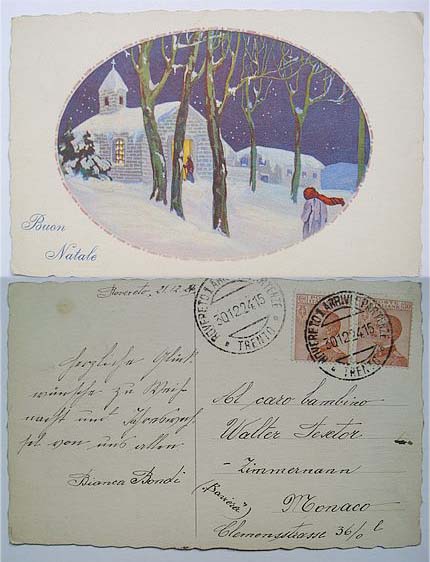 Buon
Natale
Rovereto, 21.12.24
ROVERETO 1 ARRIVI E PARTENZE
30 12 24 15
* TRENTO *
ROVERETO 1 ARRIVI E PARTENZE
30 12 24 15
* TRENTO *
Herzliche Glück
wünsche zu Weih
nacht und Jahreswech
sel von uns allen
Bianca Bondi
Al caro bambino
Walter Textor
- Zimmermann
(Baviera) Monaco
Clemensstrasse 36/0 l